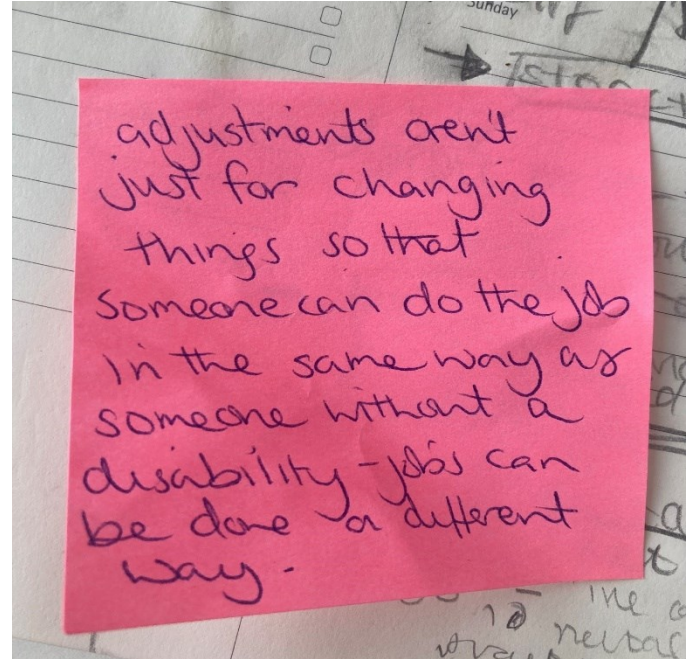 Sunday
adjustments aren't
just for changing
things so that
someone can do the job
in the same way as
someone without a
disability - jobs can
be done a different
way.